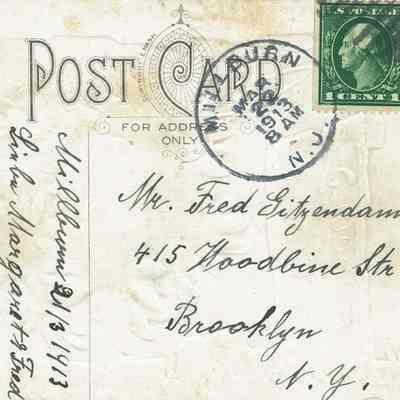 POST CARD
FOR ADDRESS
ONLY
MILLBURN
MAR
1913
8 AM
N.J.
U.S. POSTAGE
1 CENT 1
Mr. Fred Gitzendam
415 Woodbine Str
Brooklyn
N. Y.
Millburn 21/3 1913
Margaret & Fred